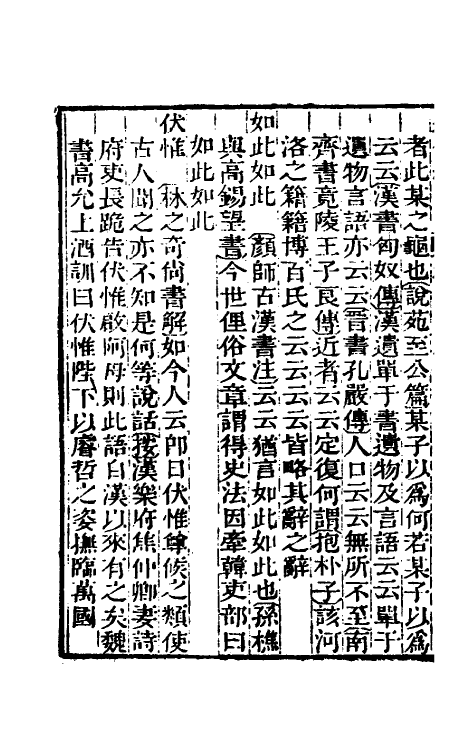 者此某之龜也說苑至公篇某子以爲何若某子以爲
云云漢書匈奴傳漢遺單于書遺物及言語云云單于
遺物言語亦云云晉書孔嚴傳人口云云無所不至南
齊書竟陵王子良傳近者云云定復何謂抱朴子該河
洛之籍籍博百氏之云云云云皆略其辭之辭
如此如此　顏師古漢書注云云猶言如此如此也孫樵
與高錫望書今世俚俗文章謂得史法因牽韓吏部曰
如此如此
伏惟　林之奇尙書解如今人云卽日伏惟尊候之類使
古人聞之亦不知是何等說話按漢樂府焦仲卿妻詩
府吏長跪告伏惟啟阿母則此語自漢以來有之矣魏
書高允上酒訓曰伏惟陛下以睿哲之姿撫臨萬國